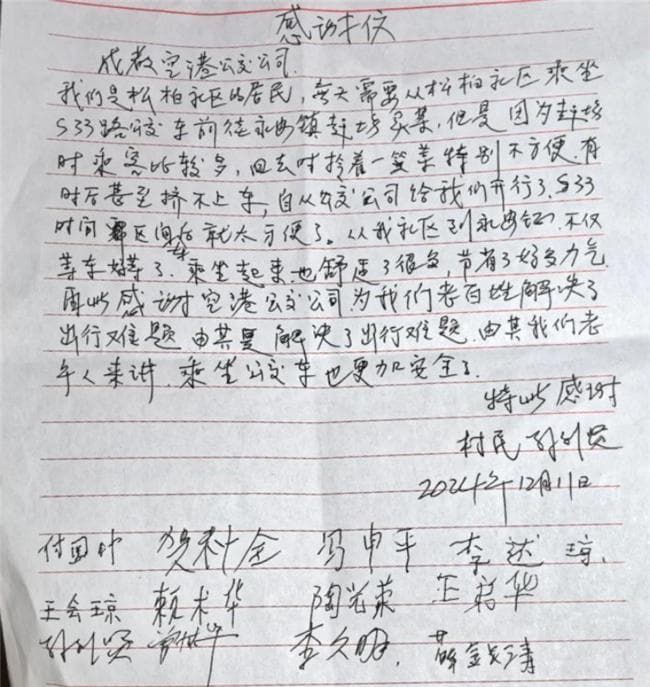 感谢信
成都空港公交公司.
我们是松柏社区的居民，每天需要从松柏社区乘坐
S33路公交车前往永安镇赶场买菜，但是因为赶场
时乘客比较多，回去时拎着一些菜特别不方便，有
时后甚至挤不上车，自从公交公司给我们开行了S33
时间区间车后就太方便了。从我社区到永安镇，不仅
等车好等了.乘坐起来也舒适了很多，节省了好多力气.
再此感谢空港公交公司为我们老百姓解决了
出行难题.由其是解决了出行难题.由其我们老
年人来讲，乘坐公交车也更加安全了.
特此感谢
村民
2024年12月11日
付国 贺科全 冯申平 李达琼.
王会琼 赖术华 陶光荣 王菊华
李久明.